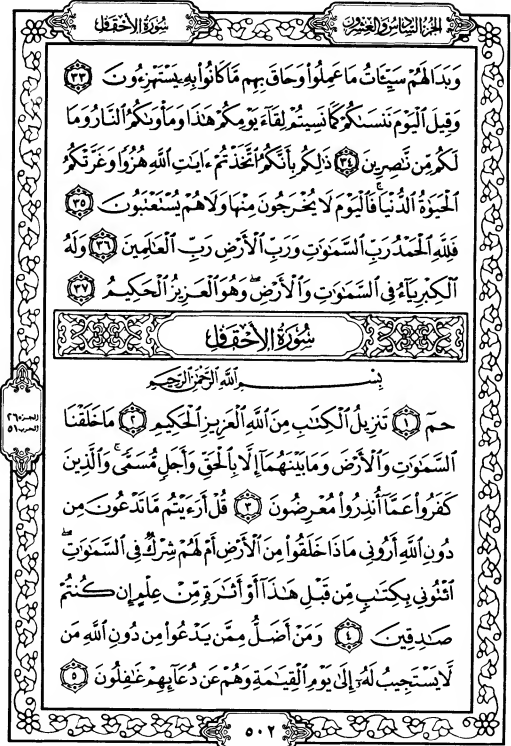 الجُزْءُ السَّادِسُ وَالعِشْرُونَ
سُورَةُ الأَحْقَافِ
وَبَدَا لَهُمْ سَيِّـَٔاتُ مَا عَمِلُوا۟ وَحَاقَ بِهِم مَّا كَانُوا۟ بِهِۦ يَسْتَهْزِءُونَ ٣٣
وَقِيلَ ٱلْيَوْمَ نَنسَىٰكُمْ كَمَا نَسِيتُمْ لِقَآءَ يَوْمِكُمْ هَٰذَا وَمَأْوَىٰكُمُ ٱلنَّارُ وَمَا
لَكُم مِّن نَّٰصِرِينَ ٣٤ ذَٰلِكُم بِأَنَّكُمُ ٱتَّخَذْتُمْ ءَايَٰتِ ٱللَّهِ هُزُوًا وَغَرَّتْكُمُ
ٱلْحَيَوٰةُ ٱلدُّنْيَا ۚ فَٱلْيَوْمَ لَا يُخْرَجُونَ مِنْهَا وَلَا هُمْ يُسْتَعْتَبُونَ ٣٥
فَلِلَّهِ ٱلْحَمْدُ رَبِّ ٱلسَّمَٰوَٰتِ وَرَبِّ ٱلْأَرْضِ رَبِّ ٱلْعَٰلَمِينَ ٣٦ وَلَهُ
ٱلْكِبْرِيَآءُ فِى ٱلسَّمَٰوَٰتِ وَٱلْأَرْضِ ۖ وَهُوَ ٱلْعَزِيزُ ٱلْحَكِيمُ ٣٧
سُورَةُ الأَحْقَافِ
بِسْمِ ٱللَّهِ ٱلرَّحْمَٰنِ ٱلرَّحِيمِ
حمٓ ١ تَنزِيلُ ٱلْكِتَٰبِ مِنَ ٱللَّهِ ٱلْعَزِيزِ ٱلْحَكِيمِ ٢ مَا خَلَقْنَا
ٱلسَّمَٰوَٰتِ وَٱلْأَرْضَ وَمَا بَيْنَهُمَآ إِلَّا بِٱلْحَقِّ وَأَجَلٍ مُّسَمًّى ۚ وَٱلَّذِينَ
كَفَرُوا۟ عَمَّآ أُنذِرُوا۟ مُعْرِضُونَ ٣ قُلْ أَرَءَيْتُم مَّا تَدْعُونَ مِن
دُونِ ٱللَّهِ أَرُونِى مَاذَا خَلَقُوا۟ مِنَ ٱلْأَرْضِ أَمْ لَهُمْ شِرْكٌ فِى ٱلسَّمَٰوَٰتِ ۖ
ٱئْتُونِى بِكِتَٰبٍ مِّن قَبْلِ هَٰذَآ أَوْ أَثَٰرَةٍ مِّنْ عِلْمٍ إِن كُنتُمْ
صَٰدِقِينَ ٤ وَمَنْ أَضَلُّ مِمَّن يَدْعُوا۟ مِن دُونِ ٱللَّهِ مَن
لَّا يَسْتَجِيبُ لَهُۥٓ إِلَىٰ يَوْمِ ٱلْقِيَٰمَةِ وَهُمْ عَن دُعَآئِهِمْ غَٰفِلُونَ ٥
الجزء ٢٦
الحزب ٥١
٥٠٢